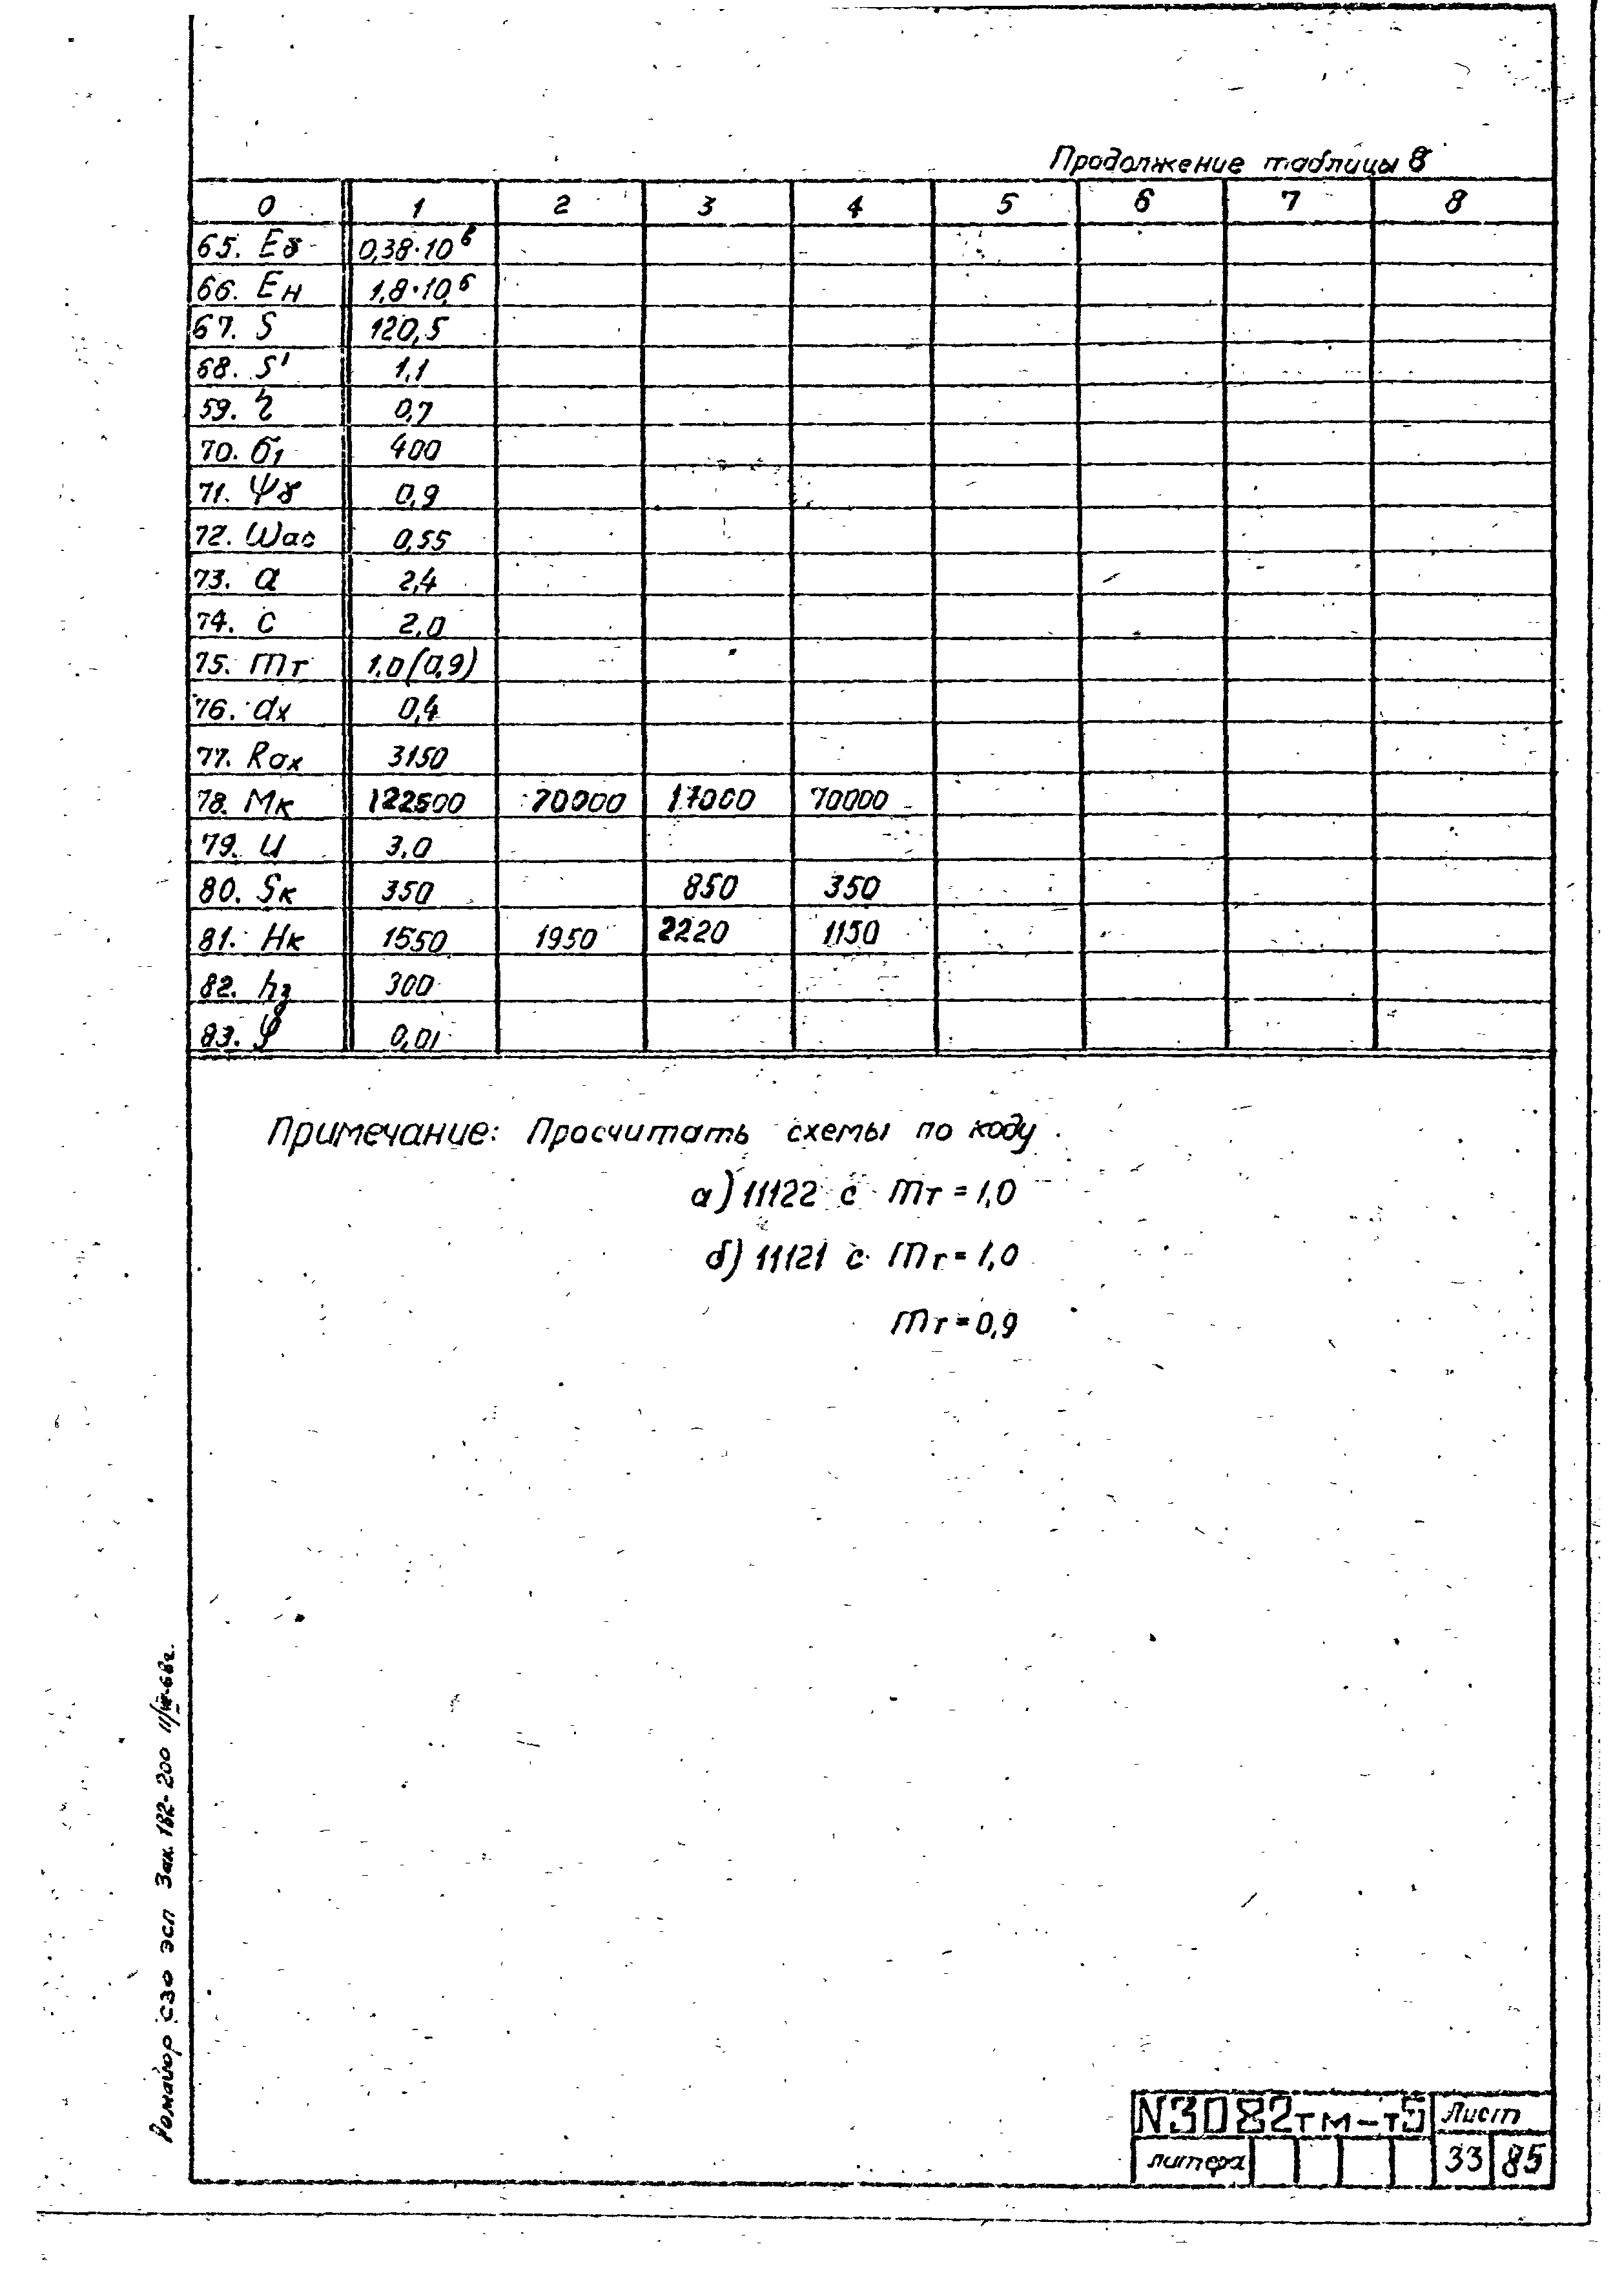 Продолжение таблицы 8
0 1 2 3 4 5 6 7 8
65. Eб 0,38·10⁶
66. Eн 1,8·10⁶
67. S 120,5
68. S' 1,1
59. η 0,7
70. б₁ 400
71. Ψб 0,9
72. Wао 0,55
73. a 2,4
74. c 2,0
75. mт 1.0 (0,9)
76. dx 0,4
77. Rax 3150
78. Mк 122500 70000 17000 70000
79. U 3,0
80. Sк 350 850 350
81. Hк 1550 1950 2220 1150
82. hз 300
83. φ 0,01
Примечание: Просчитать схемы по коду
а) 11122 с mт = 1,0
б) 11121 с mт = 1,0
mт = 0,9
СЗО ЭСП Зак. 182-200
N3082тм-т5 Лист
литера 33 85